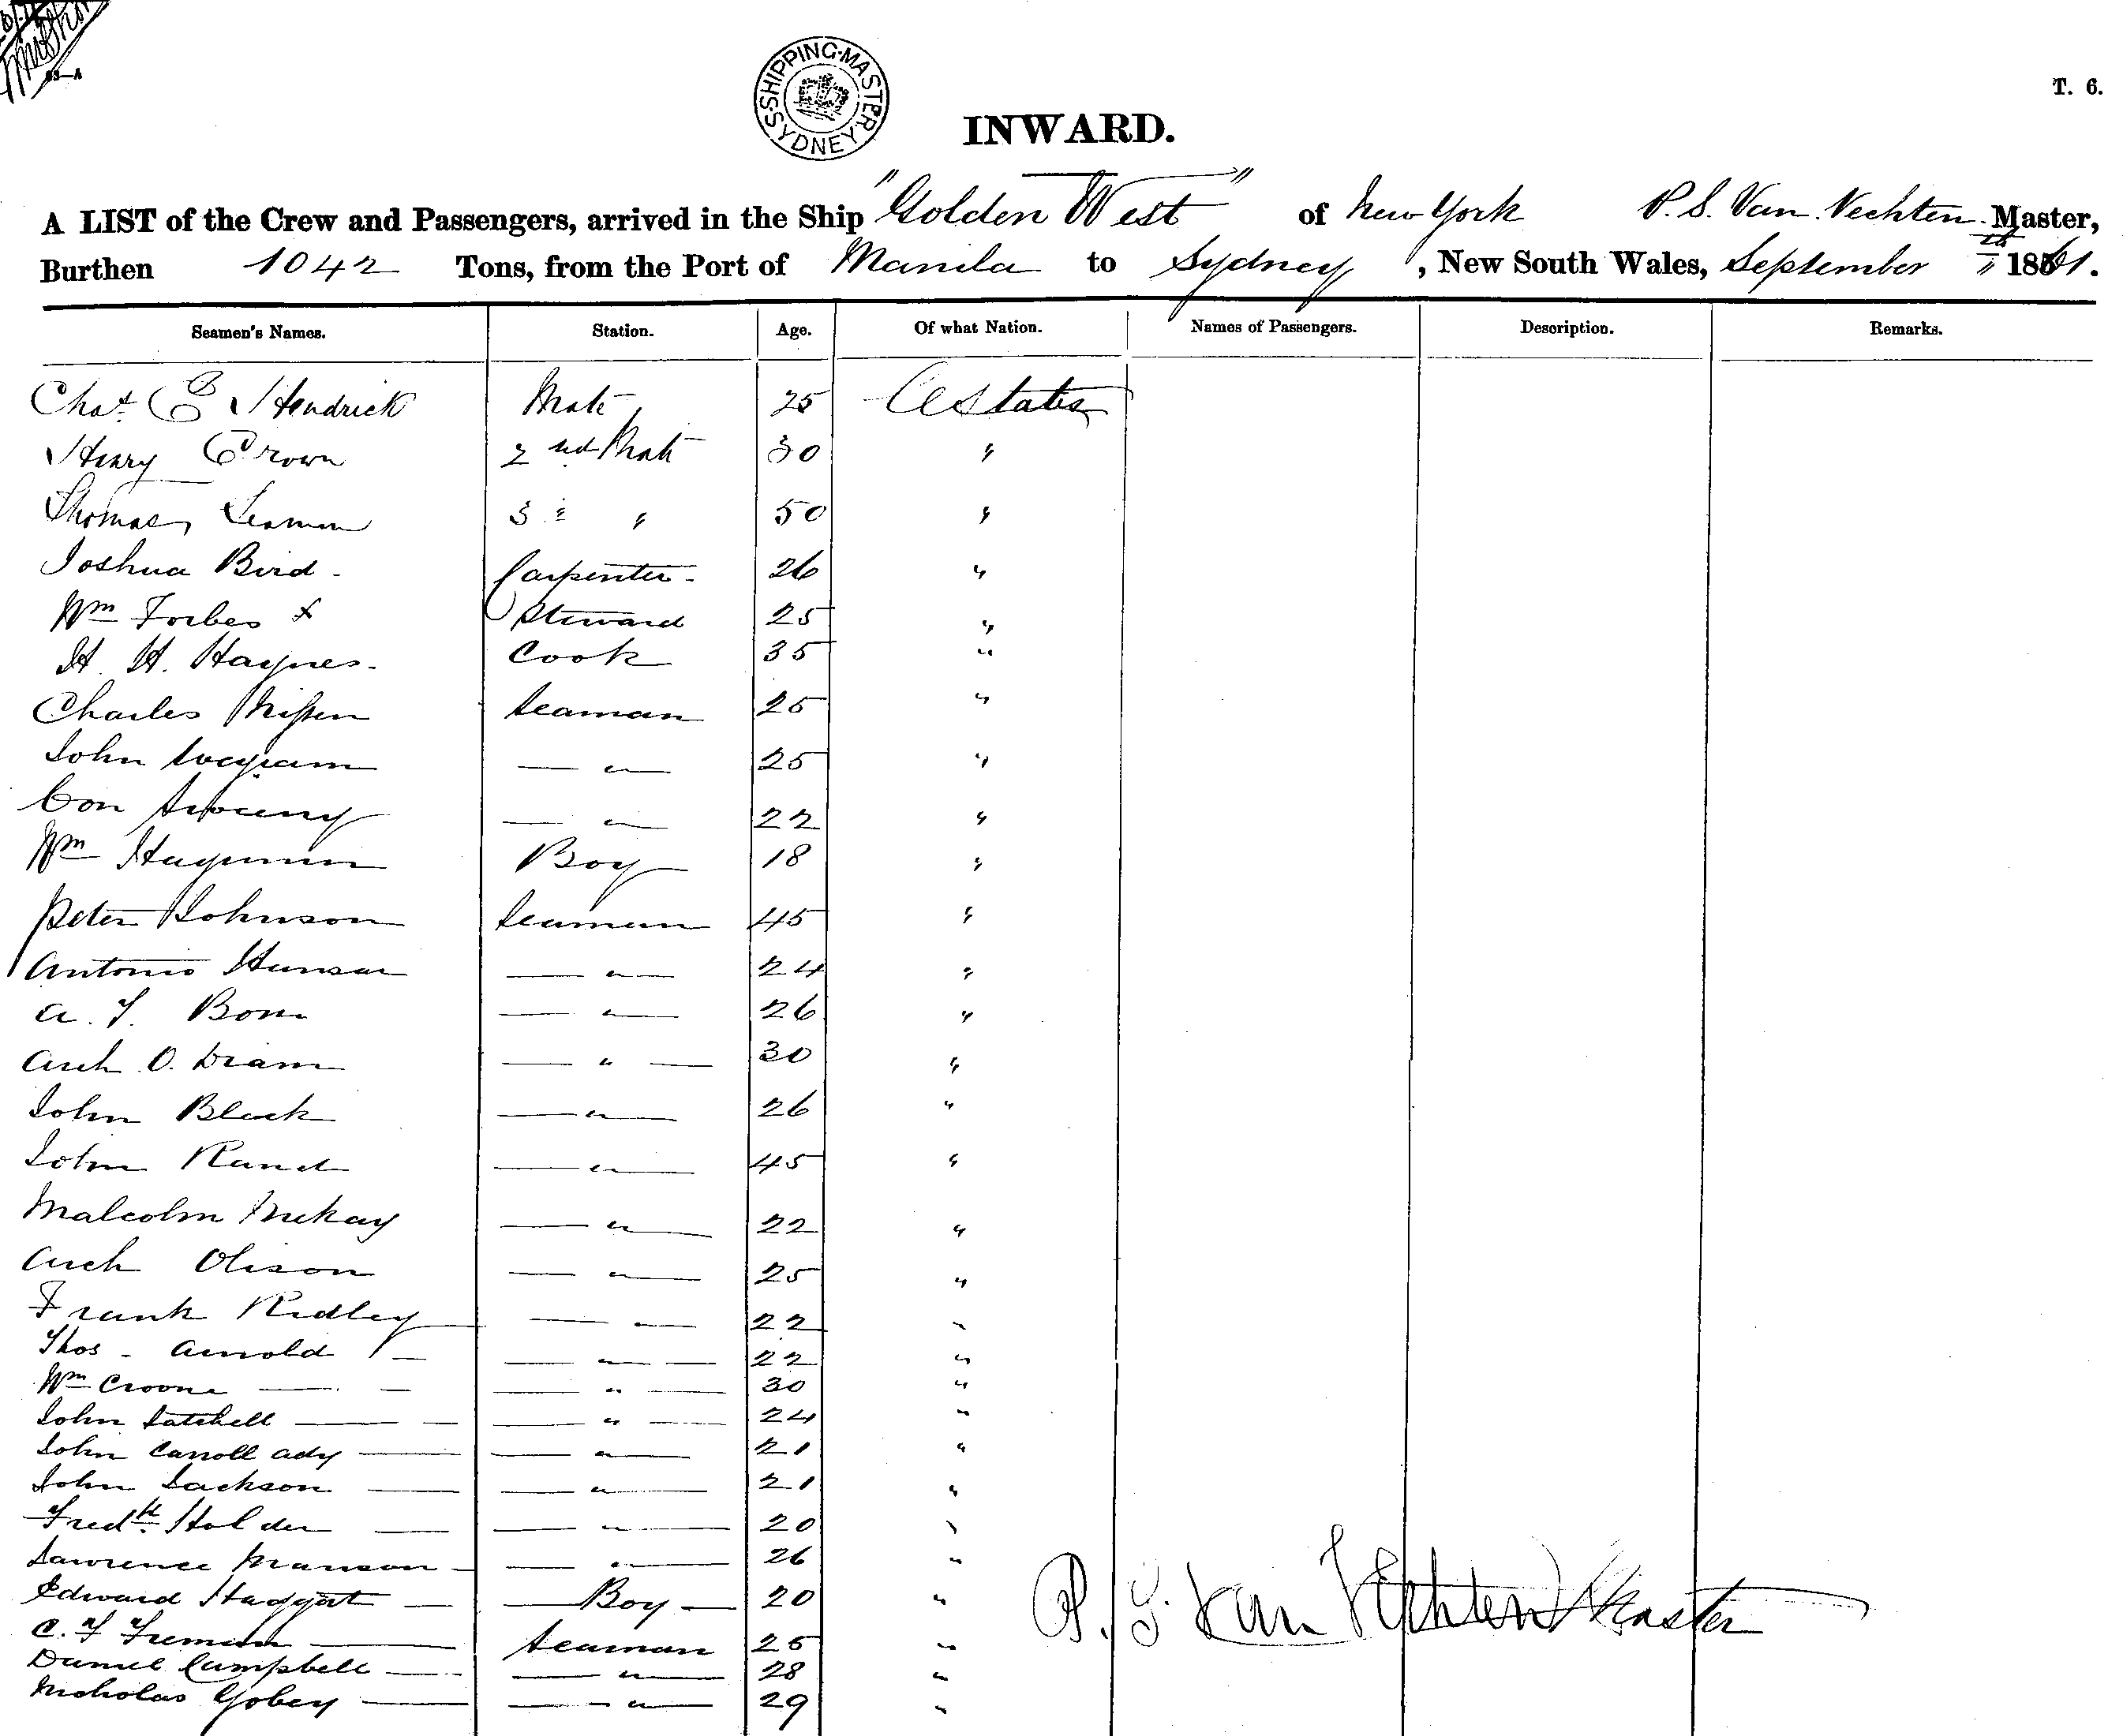 83—A
SHIPPING MASTER SYDNEY
T. 6.
INWARD.
A LIST of the Crew and Passengers, arrived in the Ship "Golden West" of New York P. S. Van Vechten Master,
Burthen 1042 Tons, from the Port of Manila to Sydney, New South Wales, September 1861.
Seamen's Names. Station. Age. Of what Nation. Names of Passengers. Description. Remarks.
Chas. E Hendrick Mate 25 States
Henry Brown 2nd Mate 30 "
Thomas Seaman 3 " " 50 "
Joshua Bird - Carpenter - 26 "
Wm Forbes x Steward 25 "
H. H. Haynes - Cook 35 "
Charles Nissen Seaman 25 "
John 25 "
Con Sweeny 22 "
Wm Hageman Boy 18 "
Peter Johnson Seaman 45 "
Antonio 24 "
A. Bom 26 "
Arch O. 30 "
John Black 26 "
John Rand 45 "
Malcolm McKay 22 "
Arch Olison 25 "
Frank Ridley 22 "
Thos - Arnold 22 "
Wm Croone 30 "
John Satchell 24 "
John Carroll ady 21 "
John Jackson 21 "
Fredk Holder 20 "
Lawrence Manson 26 "
Edward Haggart Boy 20 "
C. F Freman Seaman 25 "
Daniel Campbell " 28 "
Nicholas Gobey " 29 "
P. S. Van Vechten Master